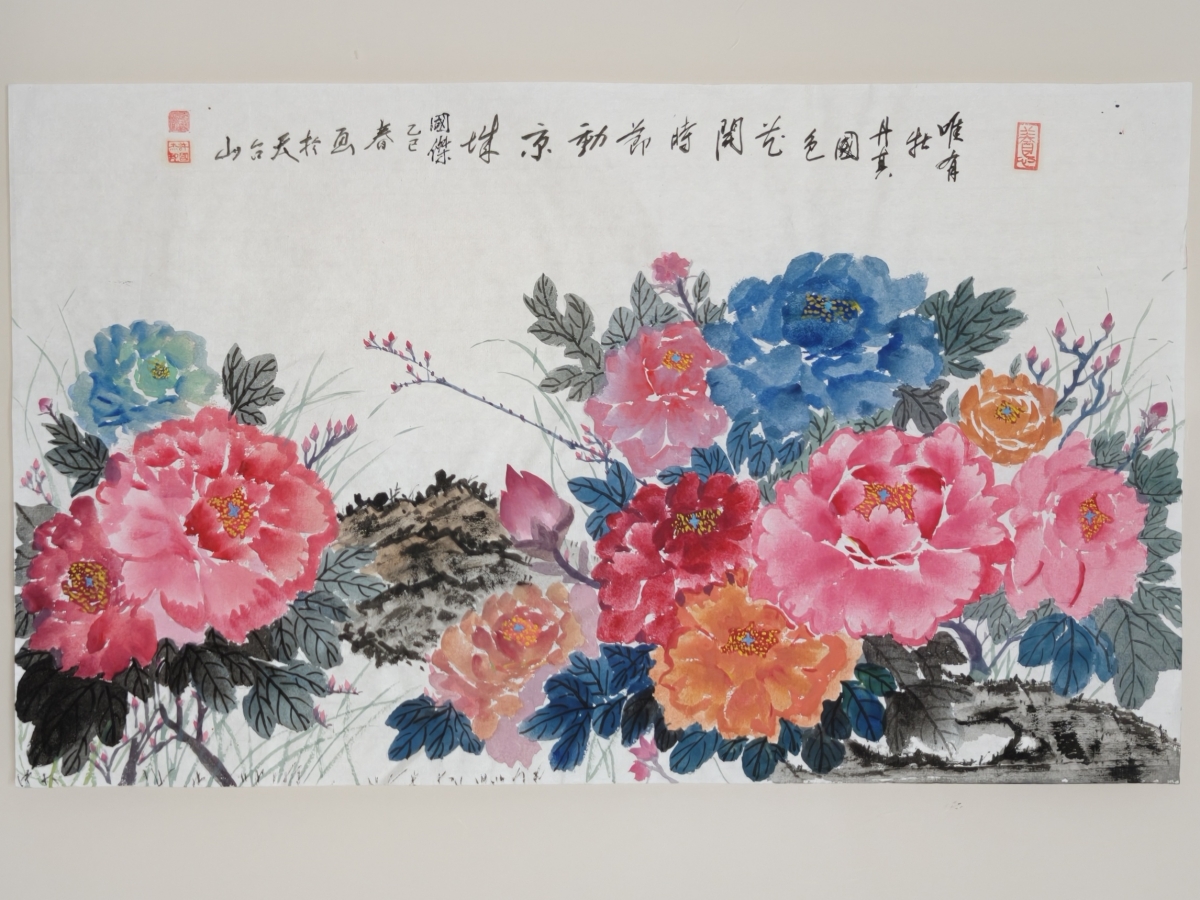 唯有牡丹真國色花開時節動京城
國傑
乙巳春画於天台山